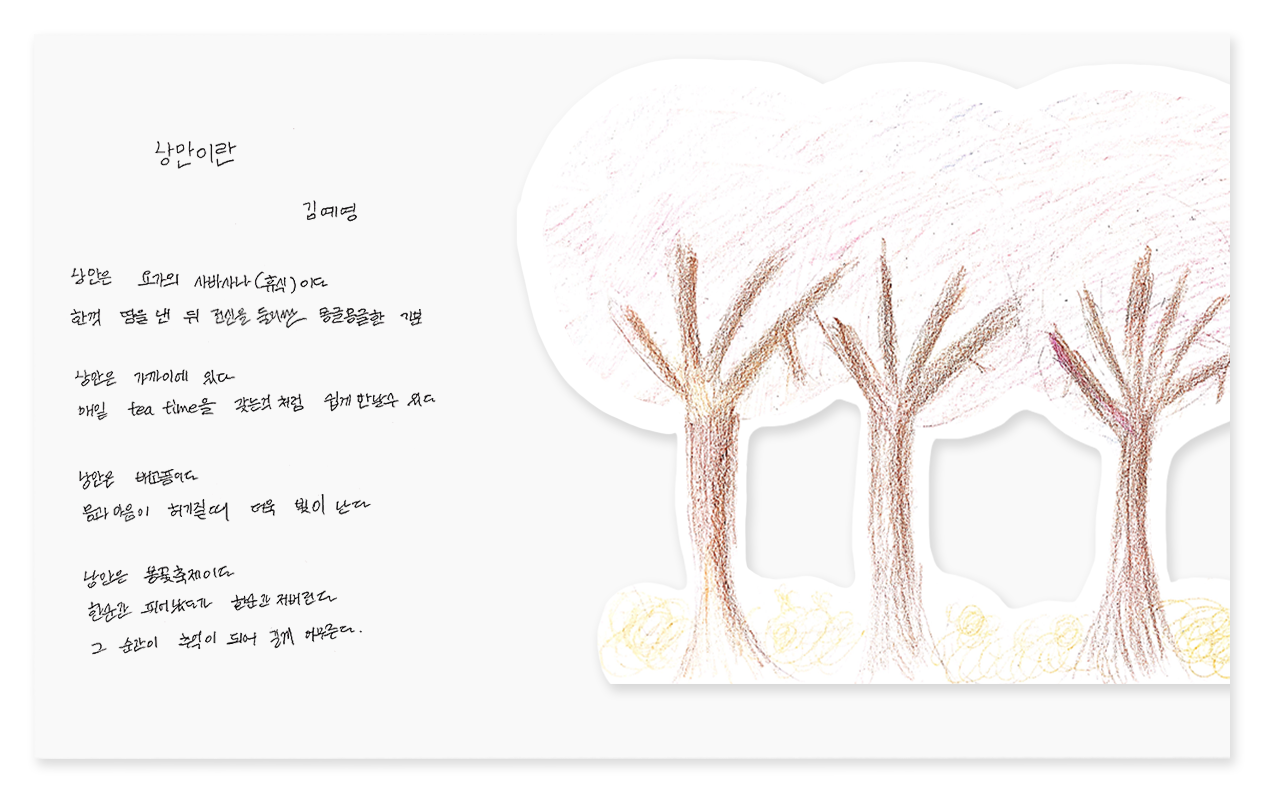 낭만이란
김예영
낭만은 요가의 사바사나(휴식)이다
한껏 땀을 낸 뒤 전신을 둘러싼 몽글몽글한 기분
낭만은 가까이에 있다
매일 tea time을 갖는것 처럼 쉽게 만날수 있다
낭만은 배고픔이다
몸과 마음이 허기질 때 더욱 빛이 난다
낭만은 봄꽃축제이다
한순간 피어났다가 한순간 저버린다
그 순간이 추억이 되어 길게 머무른다.